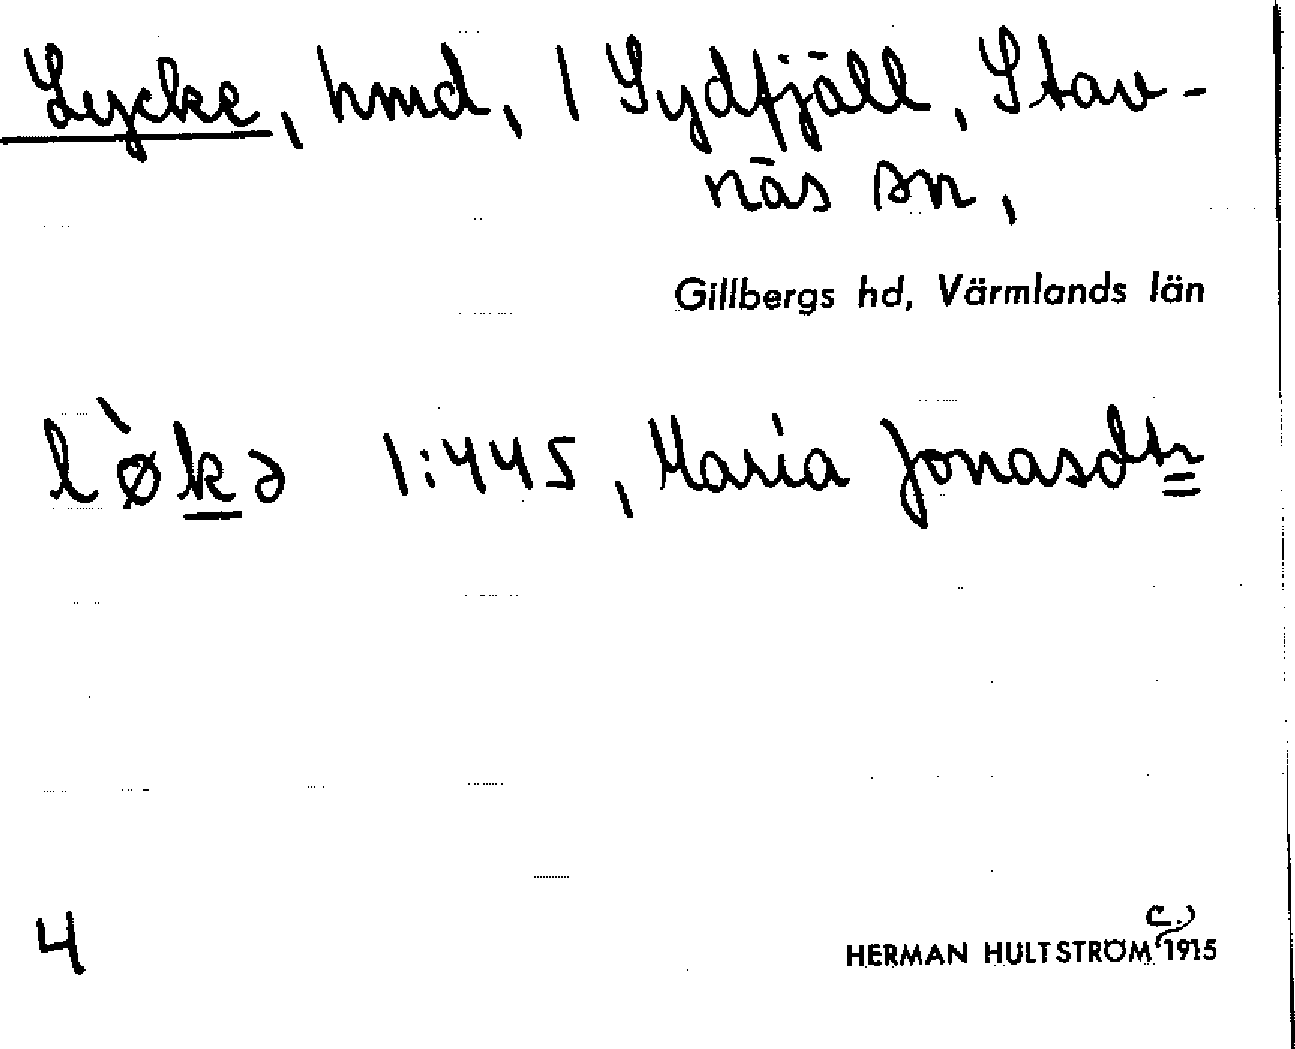 Lycke, hmd, 1 Sydfjäll, Stav-
näs sn,
Gillbergs hd, Värmlands län
l`økə 1:445, Maria Jonasdtr
4
(c.)
HERMAN HULTSTRÖM 1915